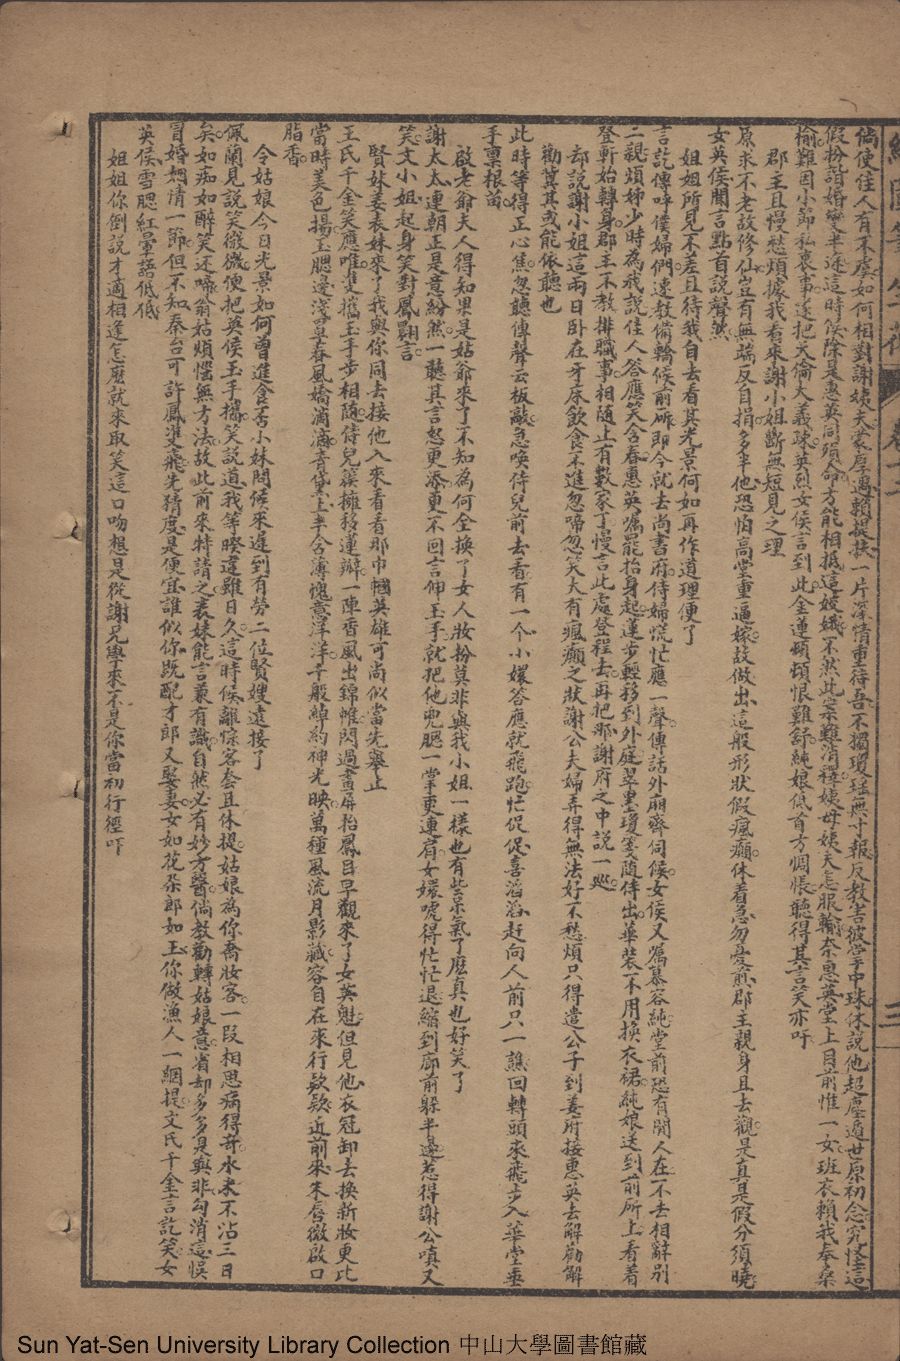 倘使佳人有不虞如何相對謝姨夫蒙厚遇賴提扶一片深情重待吾不獨瓊瑤無寸報反教害彼掌中珠休說他超塵遁世原初念究怪這
假粉諧婚變半途這時候除是惠英同殞命方能相抵這妓娥不然此案難消釋姨母姨夫怎服輸奈惠英堂上目前惟一女班衣賴我奉桑
榆難因小節私衷事遂把天倫大義疎英烈女侯言到此金蓮頓頓恨難舒純娘低首方惆悵聽得其言笑亦吁
郡主且慢愁煩據我看來謝小姐斷無短見之理
原求不老故修仙豈有無端反自捐多半他恐怕高堂重逼嫁故做出這般形狀假瘋癲休着急勿憂煎郡主親身且去觀是真是假分須曉
女英侯聞言點首說聲然
姐姐所見不差且待我自去看其光景何如再作道理便了
言訖傳呼僕婦們速教備轎候前廊即今就去尚書府侍婦慌忙應一聲傳話外廂齊伺候女侯又囑慕容純堂前恐有閒人在不去相辭別
二親煩姊少時為我說佳人答應笑含春惠英囑罷抬身起蓮步輕移到外庭翠墨瓊箋隨侍出華裝不用換衣裙純娘送到前所上看着
登軒始轉身郡主不教排職事相隨止有數家丁慢言此處登程去再把那謝府之中說一巡
却說謝小姐這兩日卧在牙床飲食不進忽啼忽笑大有瘋癲之狀謝公夫婦弄得無法好不愁煩只得遣公子到姜府接惠英去解勸解
勸冀其或能依聽也
此時等得正心焦忽聽傳聲云板敲急喚侍兒前去看有一个小嬛答應就飛跑忙促促喜滔滔赶向人前只一譙回轉頭來飛步入華堂垂
手稟根苗
啟老爺夫人得知果是姑爺來了不知為何全換了女人妝扮莫非與我小姐一樣也有些呆氣了麼真也好笑了
謝太太連朝正是意紛然一聽其言怒更添更不回言伸玉手就把他兜腮一掌棗連肩女嬛唬得忙忙退縮到廊前躲半邊惹得謝公嗔又
笑文小姐起身笑對鳳翾言
賢妹妻表妹來了我與你同去接他入來看看那巾幗英雄可尚似當先舉止
王氏千金笑應唯雙攜玉手步相隨侍兒簇擁移蓮瓣一陣香風出錦帷閃過畫屏抬鳳目早觀來了女英魁但見他衣冠卸去換新妝更比
當時美色揚玉腮邊淺淺春風嬌滴滴青黛上半含薄愧意洋洋千般綽約神光映萬種風流月影藏容自在來行欵欵近前來朱唇微啟口
脂香
令姑娘今日光景如何曾進食否小妹問候來遲到有勞二位賢嫂遠接了
佩蘭見說笑微微便把英侯玉手攜笑說道我等暌違雖日久這時候離惊客套且休提姑娘為你喬妝客一段相思病得奇水米不沾三日
矣如痴如醉笑还啼翁姑煩惱無方法故此前來特請之表妹能言兼有識自然必有妙方醫倘教勸轉姑娘意省却多多是與非勾消這悞
冒婚姻情一節但不知秦台可許鳳雙飛先猜度是便宜誰似你既配才郎又娶妻女如花朵郎如玉你做漁人一網提文氏千金言訖笑女
英侯雪腮紅暈語低低
姐姐你倒說才適相逢怎麼就來取笑這口吻想是從謝兄學來不是你當初行徑吓
三